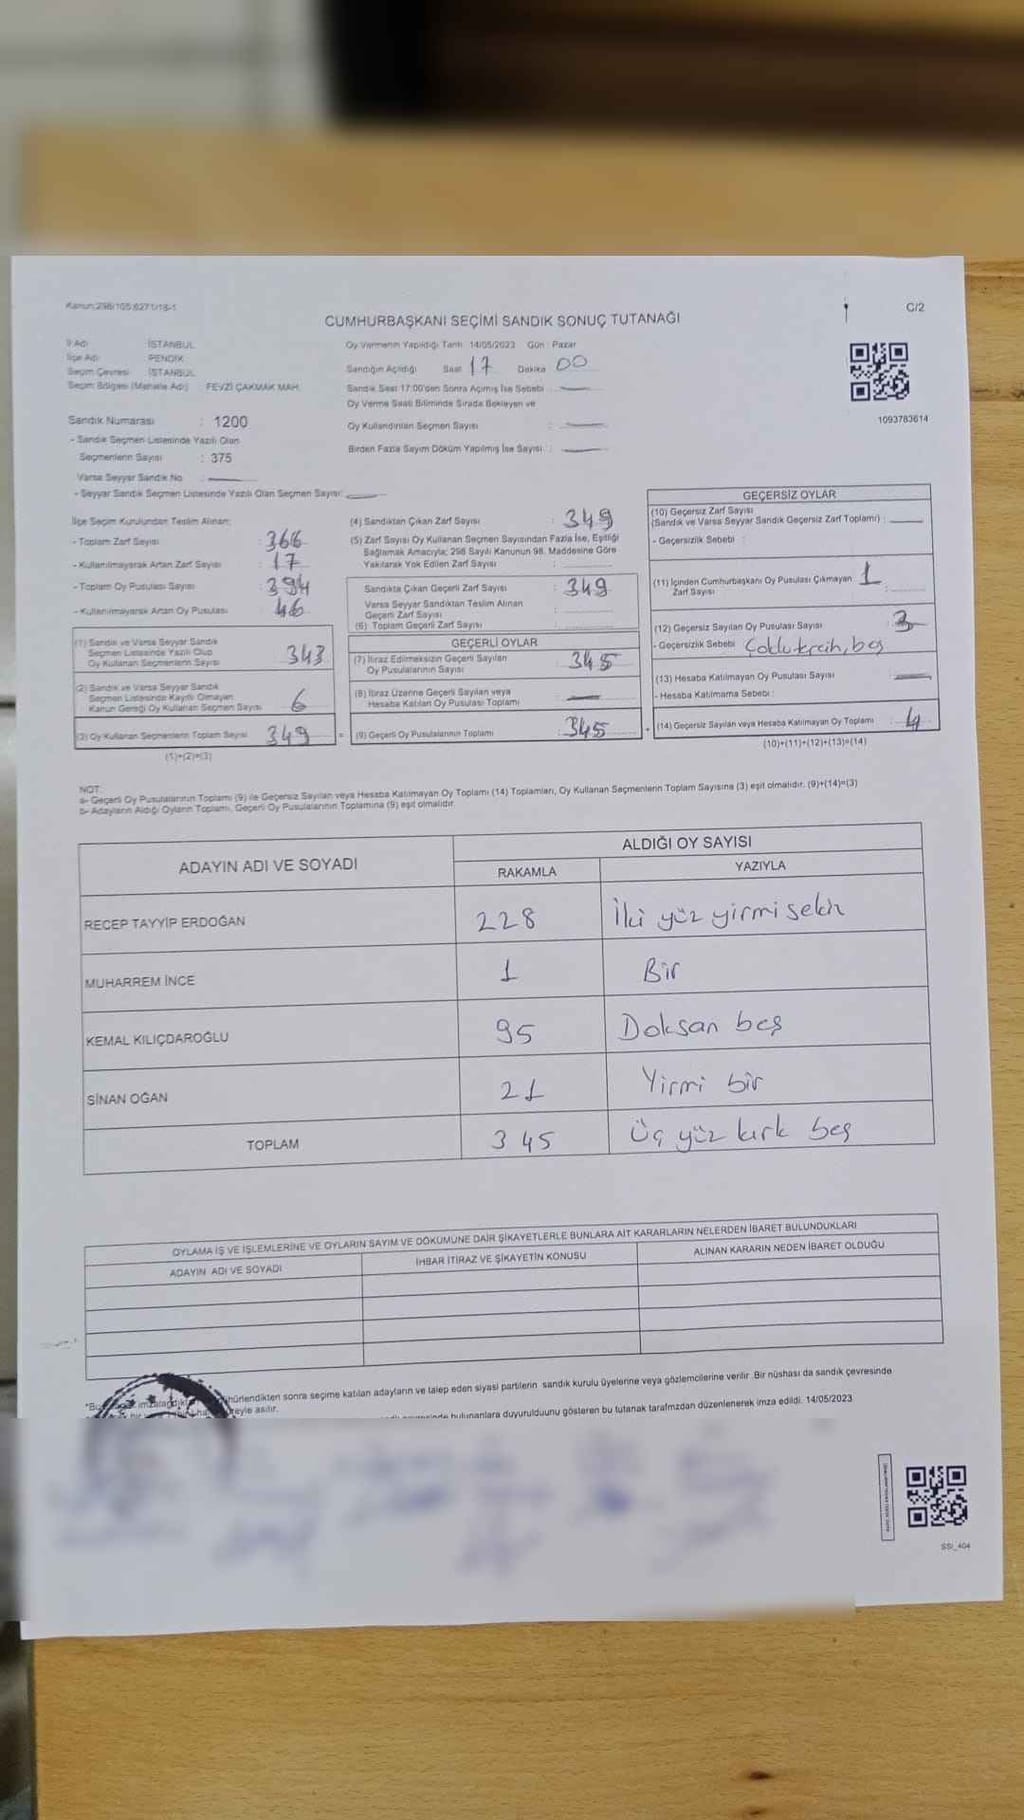 Kanun:298/105,6271/18-1
C/2
CUMHURBAŞKANI SEÇİMİ SANDIK SONUÇ TUTANAĞI
İl Adı : İSTANBUL
İlçe Adı : PENDİK
Seçim Çevresi : İSTANBUL
Seçim Bölgesi (Mahalle Adı) : FEVZİ ÇAKMAK MAH.
Oy Vermenin Yapıldığı Tarih: 14/05/2023 Gün : Pazar
Sandığın Açıldığı Saat 17 Dakika 00
Sandık Saat 17:00'den Sonra Açılmış İse Sebebi :
Oy Verme Saati Bitiminde Sırada Bekleyen ve
Oy Kullandırılan Seçmen Sayısı :
Birden Fazla Sayım Döküm Yapılmış İse Sayısı :
1093783614
Sandık Numarası : 1200
- Sandık Seçmen Listesinde Yazılı Olan
Seçmenlerin Sayısı : 375
Varsa Seyyar Sandık No :
- Seyyar Sandık Seçmen Listesinde Yazılı Olan Seçmen Sayısı:
İlçe Seçim Kurulundan Teslim Alınan;
- Toplam Zarf Sayısı : 366
- Kullanılmayarak Artan Zarf Sayısı : 17
- Toplam Oy Pusulası Sayısı : 394
- Kullanılmayarak Artan Oy Pusulası : 46
(1) Sandık ve Varsa Seyyar Sandık
Seçmen Listesinde Yazılı Olup
Oy Kullanan Seçmenlerin Sayısı 343
(2) Sandık ve Varsa Seyyar Sandık
Seçmen Listesinde Kayıtlı Olmayan
Kanun Gereği Oy Kullanan Seçmen Sayısı 6
(3) Oy Kullanan Seçmenlerin Toplam Sayısı 349
(1)+(2)=(3)
(4) Sandıktan Çıkan Zarf Sayısı : 349
(5) Zarf Sayısı Oy Kullanan Seçmen Sayısından Fazla İse, Eşitliği
Sağlamak Amacıyla; 298 Sayılı Kanunun 98. Maddesine Göre
Yakılarak Yok Edilen Zarf Sayısı :
Sandıkta Çıkan Geçerli Zarf Sayısı : 349
Varsa Seyyar Sandıktan Teslim Alınan
Geçerli Zarf Sayısı :
(6) Toplam Geçerli Zarf Sayısı :
GEÇERLİ OYLAR
(7) İtiraz Edilmeksizin Geçerli Sayılan
Oy Pusulalarının Sayısı : 345
(8) İtiraz Üzerine Geçerli Sayılan veya
Hesaba Katılan Oy Pusulası Toplamı :
= (9) Geçerli Oy Pusulalarının Toplamı : 345 +
GEÇERSİZ OYLAR
(10) Geçersiz Zarf Sayısı
(Sandık ve Varsa Seyyar Sandık Geçersiz Zarf Toplamı) :
- Geçersizlik Sebebi :
(11) İçinden Cumhurbaşkanı Oy Pusulası Çıkmayan 1
Zarf Sayısı :
(12) Geçersiz Sayılan Oy Pusulası Sayısı : 3
- Geçersizlik Sebebi
(13) Hesaba Katılmayan Oy Pusulası Sayısı :
- Hesaba Katılmama Sebebi :
(14) Geçersiz Sayılan veya Hesaba Katılmayan Oy Toplamı : 4
(10)+(11)+(12)+(13)=(14)
NOT:
a- Geçerli Oy Pusulalarının Toplamı (9) ile Geçersiz Sayılan veya Hesaba Katılmayan Oy Toplamı (14) Toplamları, Oy Kullanan Seçmenlerin Toplam Sayısına (3) eşit olmalıdır. (9)+(14)=(3)
b- Adayların Aldığı Oyların Toplamı, Geçerli Oy Pusulalarının Toplamına (9) eşit olmalıdır.
ADAYIN ADI VE SOYADI ALDIĞI OY SAYISI
RAKAMLA YAZIYLA
RECEP TAYYİP ERDOĞAN 228 İki yüz yirmi sekiz
MUHARREM İNCE 1 Bir
KEMAL KILIÇDAROĞLU 95 Doksan beş
SİNAN OĞAN 21 Yirmi bir
TOPLAM 345 Üç yüz kırk beş
OYLAMA İŞ VE İŞLEMLERİNE VE OYLARIN SAYIM VE DÖKÜMÜNE DAİR ŞİKAYETLERLE BUNLARA AİT KARARLARIN NELERDEN İBARET BULUNDUKLARI
ADAYIN ADI VE SOYADI İHBAR İTİRAZ VE ŞİKAYETİN KONUSU ALINAN KARARIN NEDEN İBARET OLDUĞU
sonra seçime katılan adayların ve talep eden siyasi partilerin sandık kurulu üyelerine veya gözlemcilerine verilir. Bir nüshası da sandık çevresinde
asılır.
bulunanlara duyurulduunu gösteren bu tutanak tarafmzdan düzenlenerek imza edildi. 14/05/2023
SSI_404